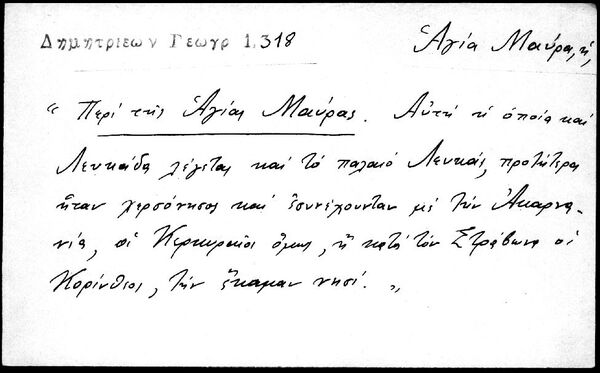 Δημητριεων Γεωγρ 1,318
Ἁγία Μαύρα, ἡ,
“ Περί τῆς Ἁγίας Μαύρας. Αὐτή ἡ ὁποία καί
Λευκάδα λέγεται καί τό παλαιό Λευκάς, προτήτερα
ἦταν χερσόνησος καί ἐσυνέχουνταν μέ τήν Ἀκαρνα-
νία, οἱ Κερκυραῖοι ὅμως, ἤ κατά τόν Στράβωνα οἱ
Κορίνθιοι, τήν ἔκαμαν νησί. ”